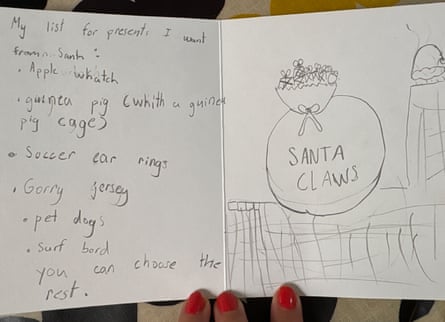 My list for present: I want
from Santa :
• Apple whatch
• guinea pig (whith a guinea
pig cage)
• Soccer ear rings
• Gorry jersey
• pet dogs
• surf bord
you can choose the
rest.
SANTA
CLAWS